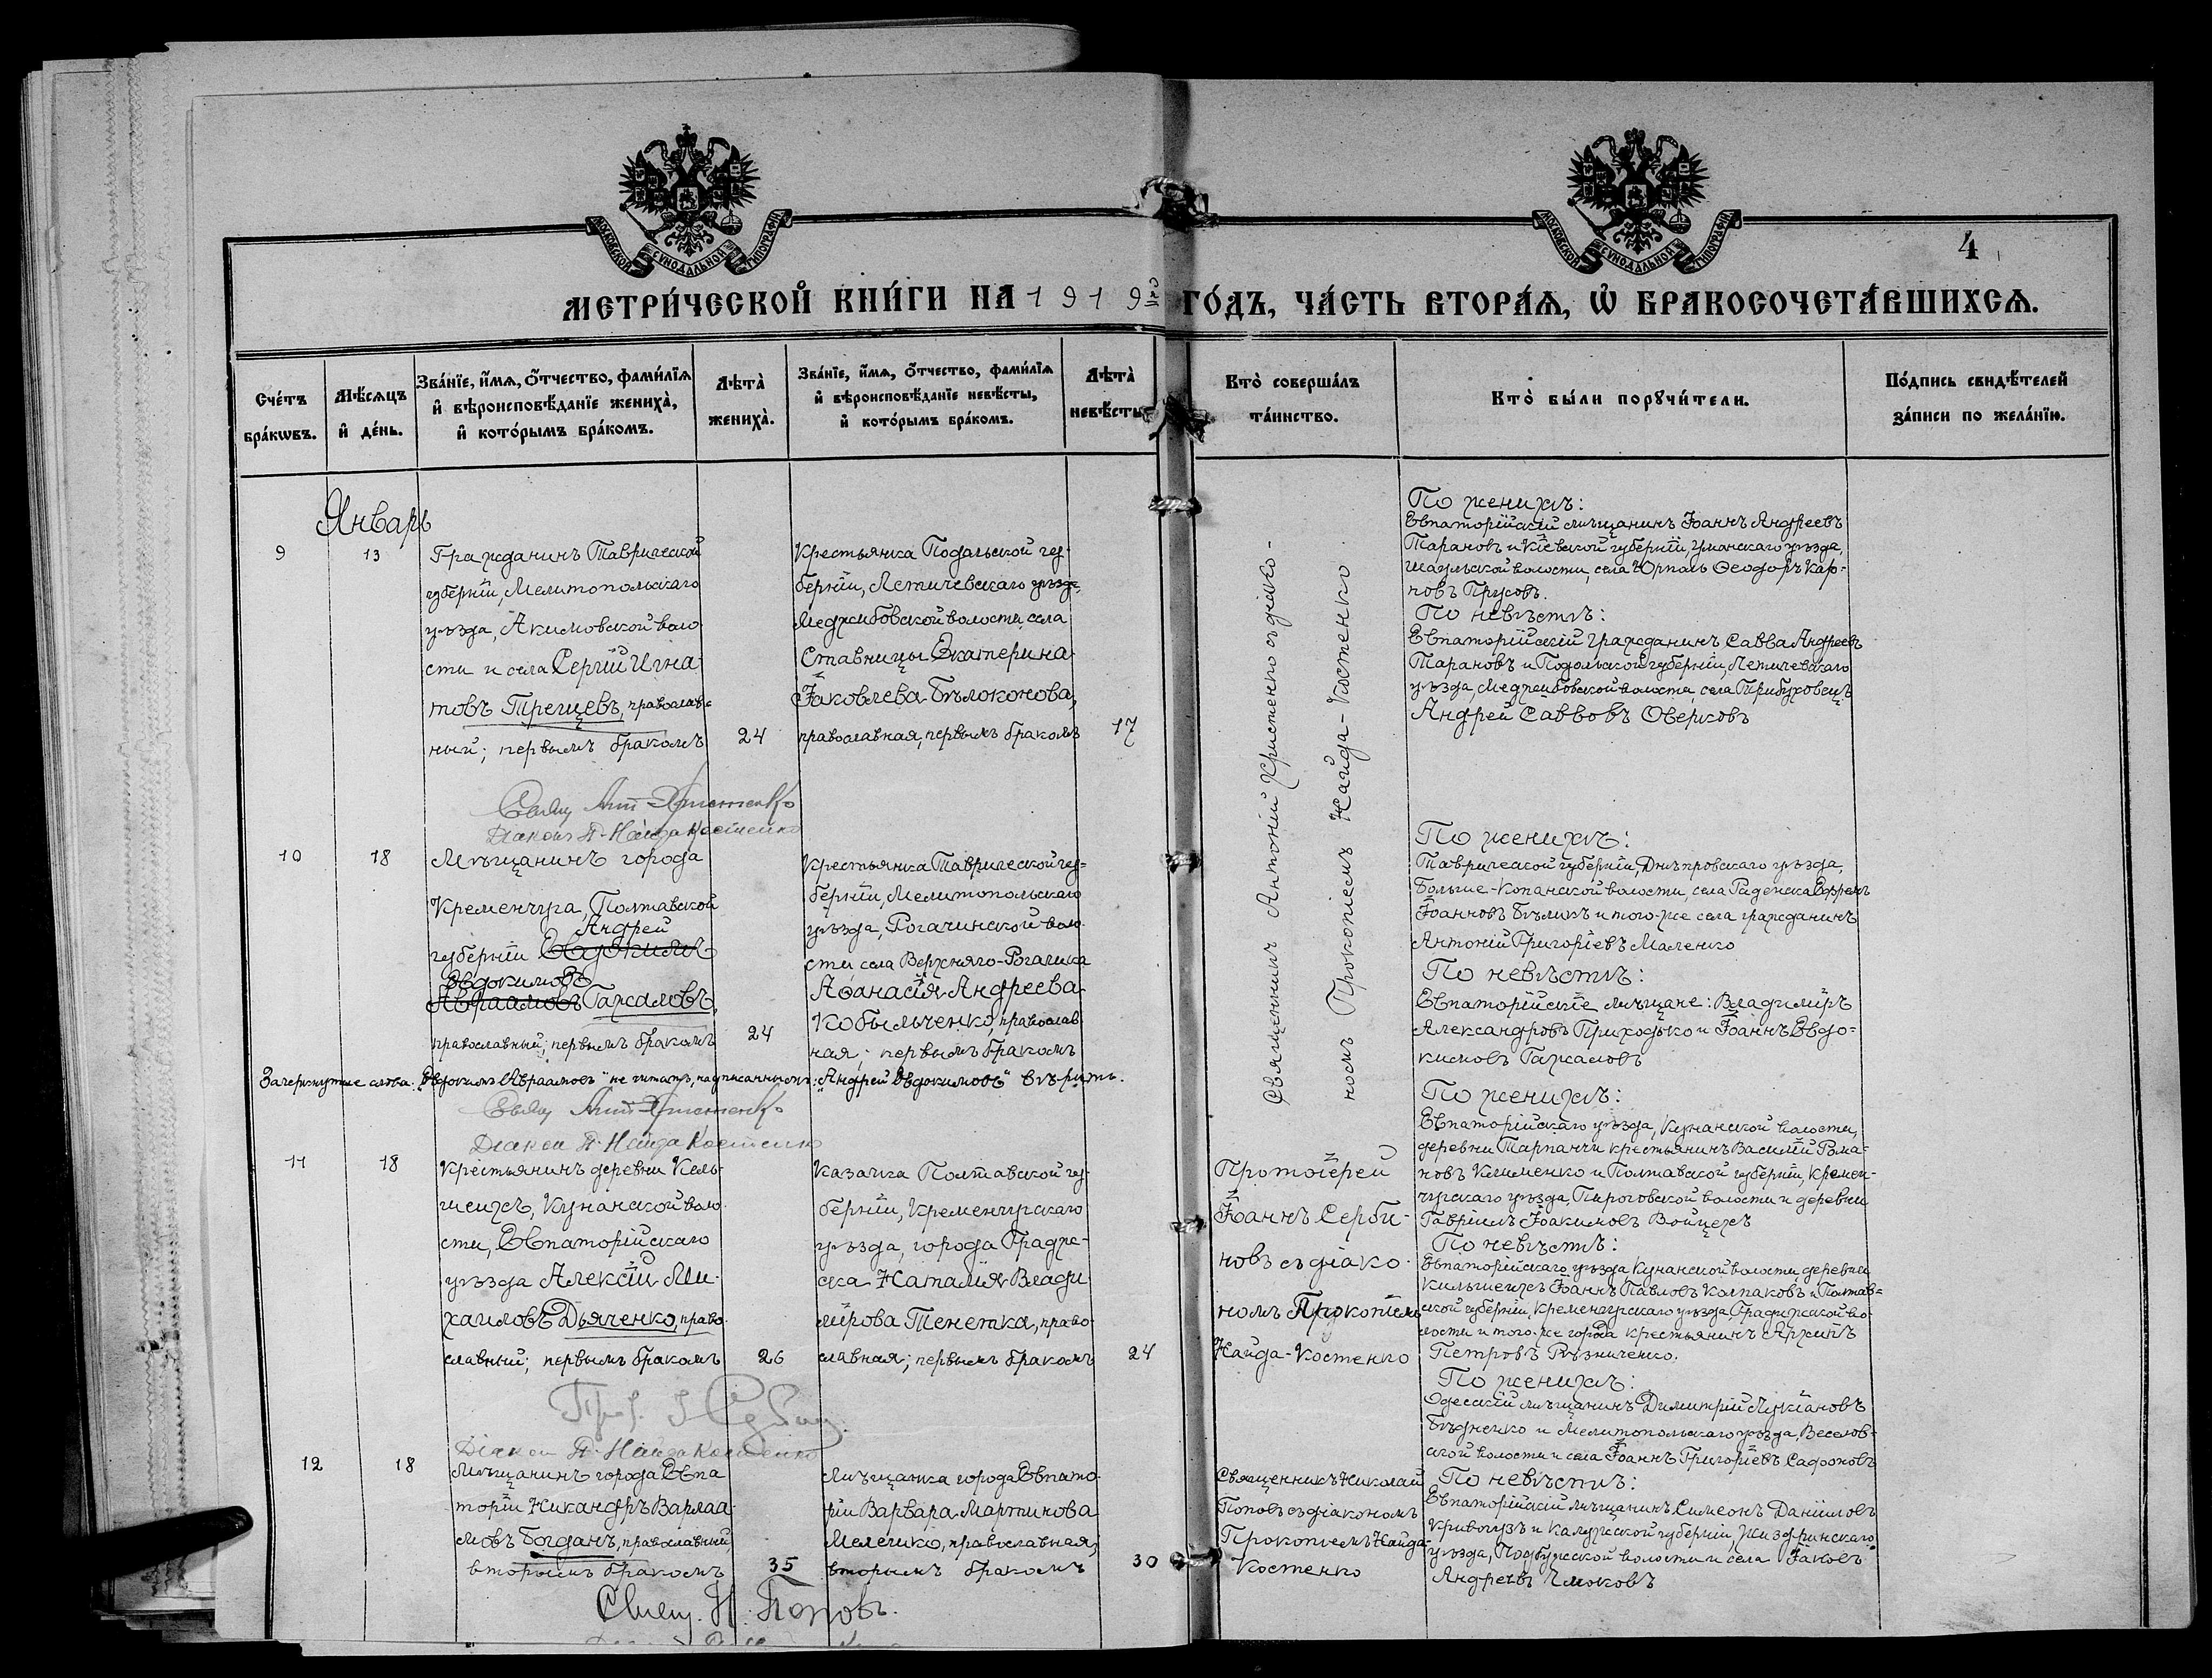 МОСКОВСКОЙ СѴНОДАЛЬНОЙ ТИПОГРАФІИ
МОСКОВСКОЙ СѴНОДАЛЬНОЙ ТИПОГРАФІИ
4
МЕТРИ́ЧЕСКОЙ КНИ́ГИ НА 1919й ГО́ДЪ, ЧА́СТЬ ВТОРА́Ѧ, Ѽ БРАКОСОЧЕТА́ВШИХСѦ.
Сче́тъ бра́кѡвъ.
Мѣ́сѧцъ и҆ де́нь.
Зва́нїе, и҆́мѧ, ѻ҆́тчество, фами́лїѧ
и҆ вѣроисповѣ́данїе жениха̀,
и҆ кото́рымъ бра́комъ.
Лѣта̀ жениха̀.
Зва́нїе, и҆́мѧ, ѻ҆́тчество, фами́лїѧ
и҆ вѣроисповѣ́данїе невѣ́сты,
и҆ кото́рымъ бра́комъ.
Лѣта̀ невѣ́сты.
Кто̀ соверша́лъ
та́инство.
Кто̀ бы́ли порꙋчи́тели.
По́дпись свидѣ́телей
за́писи по жела́нїю.
Январь
9
13
Гражданинъ Таврической
губерніи, Мелитопольскаго
уѣзда, Акимовской воло
сти и села Сергій Игна
товъ Трещевъ, православ=
ный; первымъ бракомъ
24
Крестьянка Подольской гу-
берніи, Летичевскаго уѣзда
Меджибовской волости, села
Ставницы Екатерина
Іаковлева Бѣлоконова,
православная, первымъ бракомъ
17
Священникъ Антоній Христенко съ діако-
номъ Прокопіемъ Найда-Костенко
По женихѣ:
Евпаторійскій мѣщанинъ Іоаннъ Андреевъ
Тарановъ и Кіевской губерніи, Уманскаго уѣзда,
волости, села Юрполь Ѳеодоръ Кар-
повъ Прусовъ.
По невѣстѣ:
Евпаторійскій гражданинъ Савва Андреевъ
Тарановъ и Подольской губерніи, Летичевскаго
уѣзда, Меджибовской волости, села Требуховецъ
Андрей Саввовъ Оверковъ
Свящ Ант Христенко
Діаконъ П. Найда Костенко
10
18
Мѣщанинъ города
Кременчуга, Полтавской
Андрей
губерніи Евдокимъ
Евдокимовъ
Авраамовъ Гажаловъ,
православный; первымъ бракомъ
24
Крестьянка Таврической гу=
берніи, Мелитопольскаго
уѣзда, Рогачинской воло-
сти, села Верхняго-Рогачика
Аѳанасія Андреева
Кобыльченко, православ
ная; первымъ бракомъ
По женихѣ:
Таврической губерніи, Днѣпровскаго уѣзда,
Больше-Копанской волости, села Раденска Ефремъ
Іоанновъ Бѣликъ и того-же села гражданинъ
Антоній Григоріевъ Маленко
По невѣстѣ:
Евпаторійскіе мѣщане: Владиміръ
Александровъ Приходько и Іоаннъ Евдо=
кимовъ Гажаловъ
Зачеркнутые слова: „Евдокимъ Авраамовъ" не читать, надписаннымъ: „Андрей Евдокимовъ" вѣрить.
Свящ Ант Христенко
Діаконъ П. Найда Костенко
11
18
Крестьянинъ деревни Киль-
шеихъ, Кунанской воло-
сти, Евпаторійскаго
уѣзда Алексій Ми-
хаиловъ Дьяченко, право-
славный; первымъ бракомъ
26
Казачка Полтавской гу-
берніи, Кременчугскаго
уѣзда, города Градиж-
ска Наталія Влади
мірова Тенетка, право-
славная; первымъ бракомъ
24
Протоіерей
Іоаннъ Серби-
новъ съ діако-
номъ Прокопіемъ
Найда-Костенко
По женихѣ:
Евпаторійскаго уѣзда, Кунанской волости,
деревни Тарпанчи крестьянинъ Василій Рома-
новъ Клименко и Полтавской губерніи, Кремен-
чугскаго уѣзда, Пироговской волости и деревни
Гавріилъ Іоакимовъ Войцехъ
По невѣстѣ:
Евпаторійскаго уѣзда Кунанской волости, деревни
Кильшеихъ Іоаннъ Павловъ Колпаковъ и Полтав=
ской губерніи, Кременчугскаго уѣзда, Градижской во-
лости и того-же города крестьянинъ Архипъ
Петровъ Рѣзниченко.
Діакон П. Найда Костенко
12
18
Мѣщанинъ города Евпа
торіи Никандръ Варлаа-
мовъ Богданъ, православный
вторымъ бракомъ
35
Мѣщанка города Евпато-
ріи Варвара Мартинова
Мелешко, православная,
вторымъ бракомъ
30
Священникъ Николай
Поповъ съ діакономъ
Прокопіемъ Найда-
Костенко
По женихѣ:
Одесскій мѣщанинъ Димитрій Лукіановъ
Бѣдненко и Мелитопольскаго уѣзда, Веселов-
ской волости и села Іоаннъ Григоріевъ Сафоновъ
По невѣстѣ:
Евпаторійскій мѣщанинъ Симеонъ Даніиловъ
Кривогузъ и Калужской губерніи, Жиздринскаго
уѣзда, Подбужской волости и села Іаковъ
Андреевъ Чмоковъ
Свящ. Н. Поповъ.